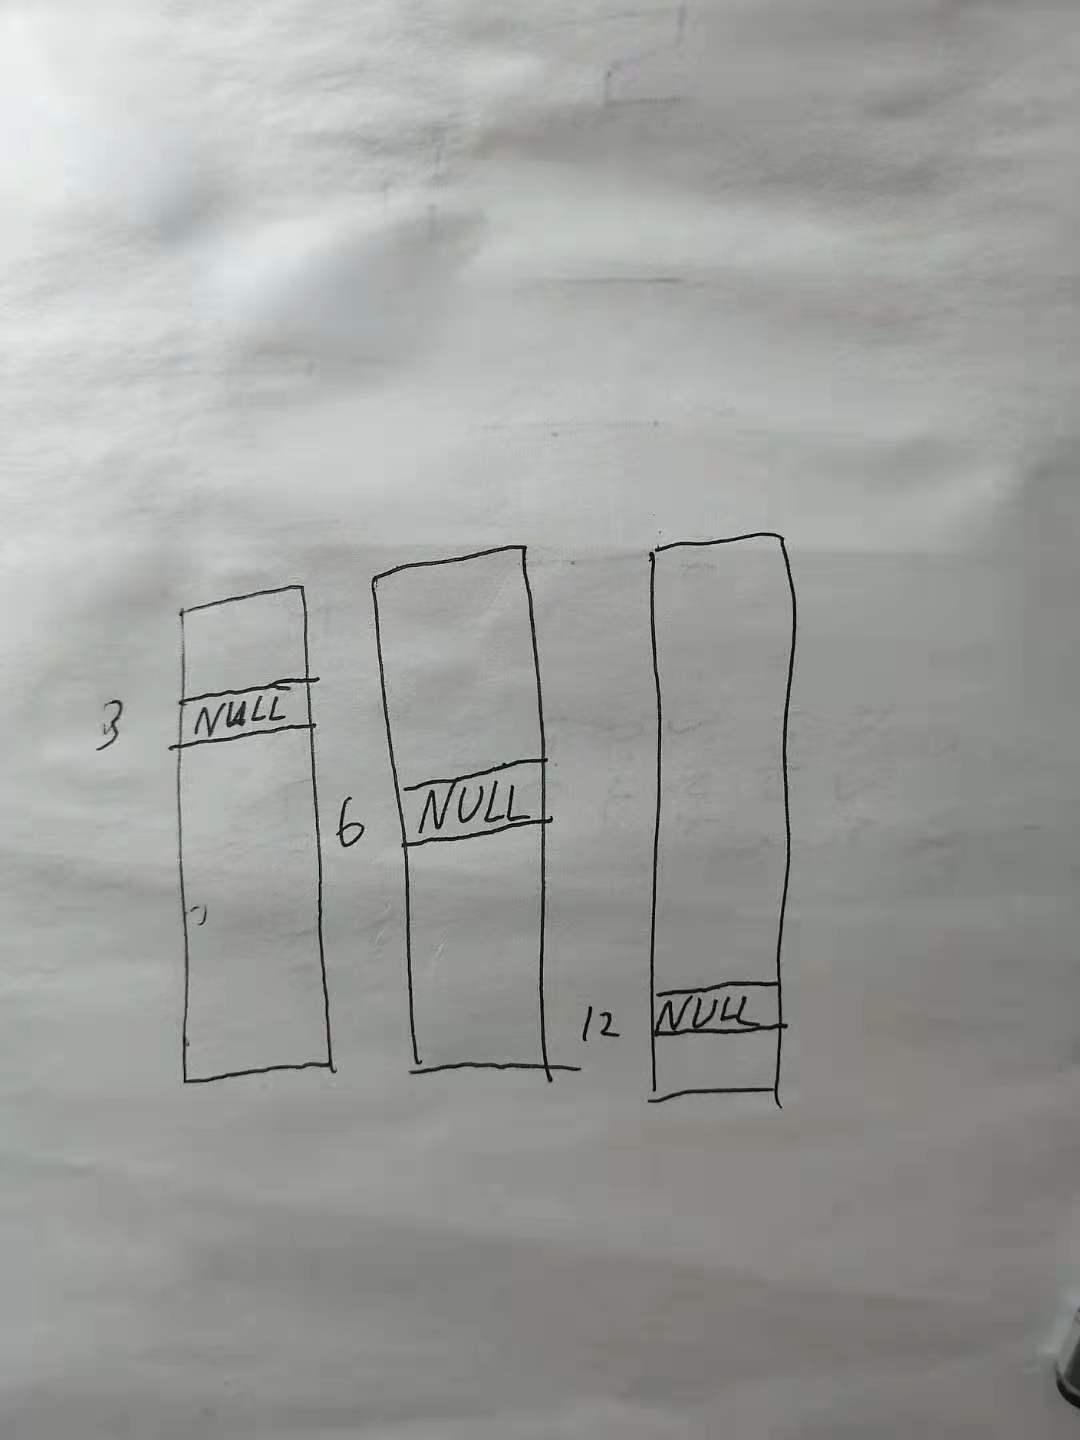 3 NULL
6 NULL
12 NULL